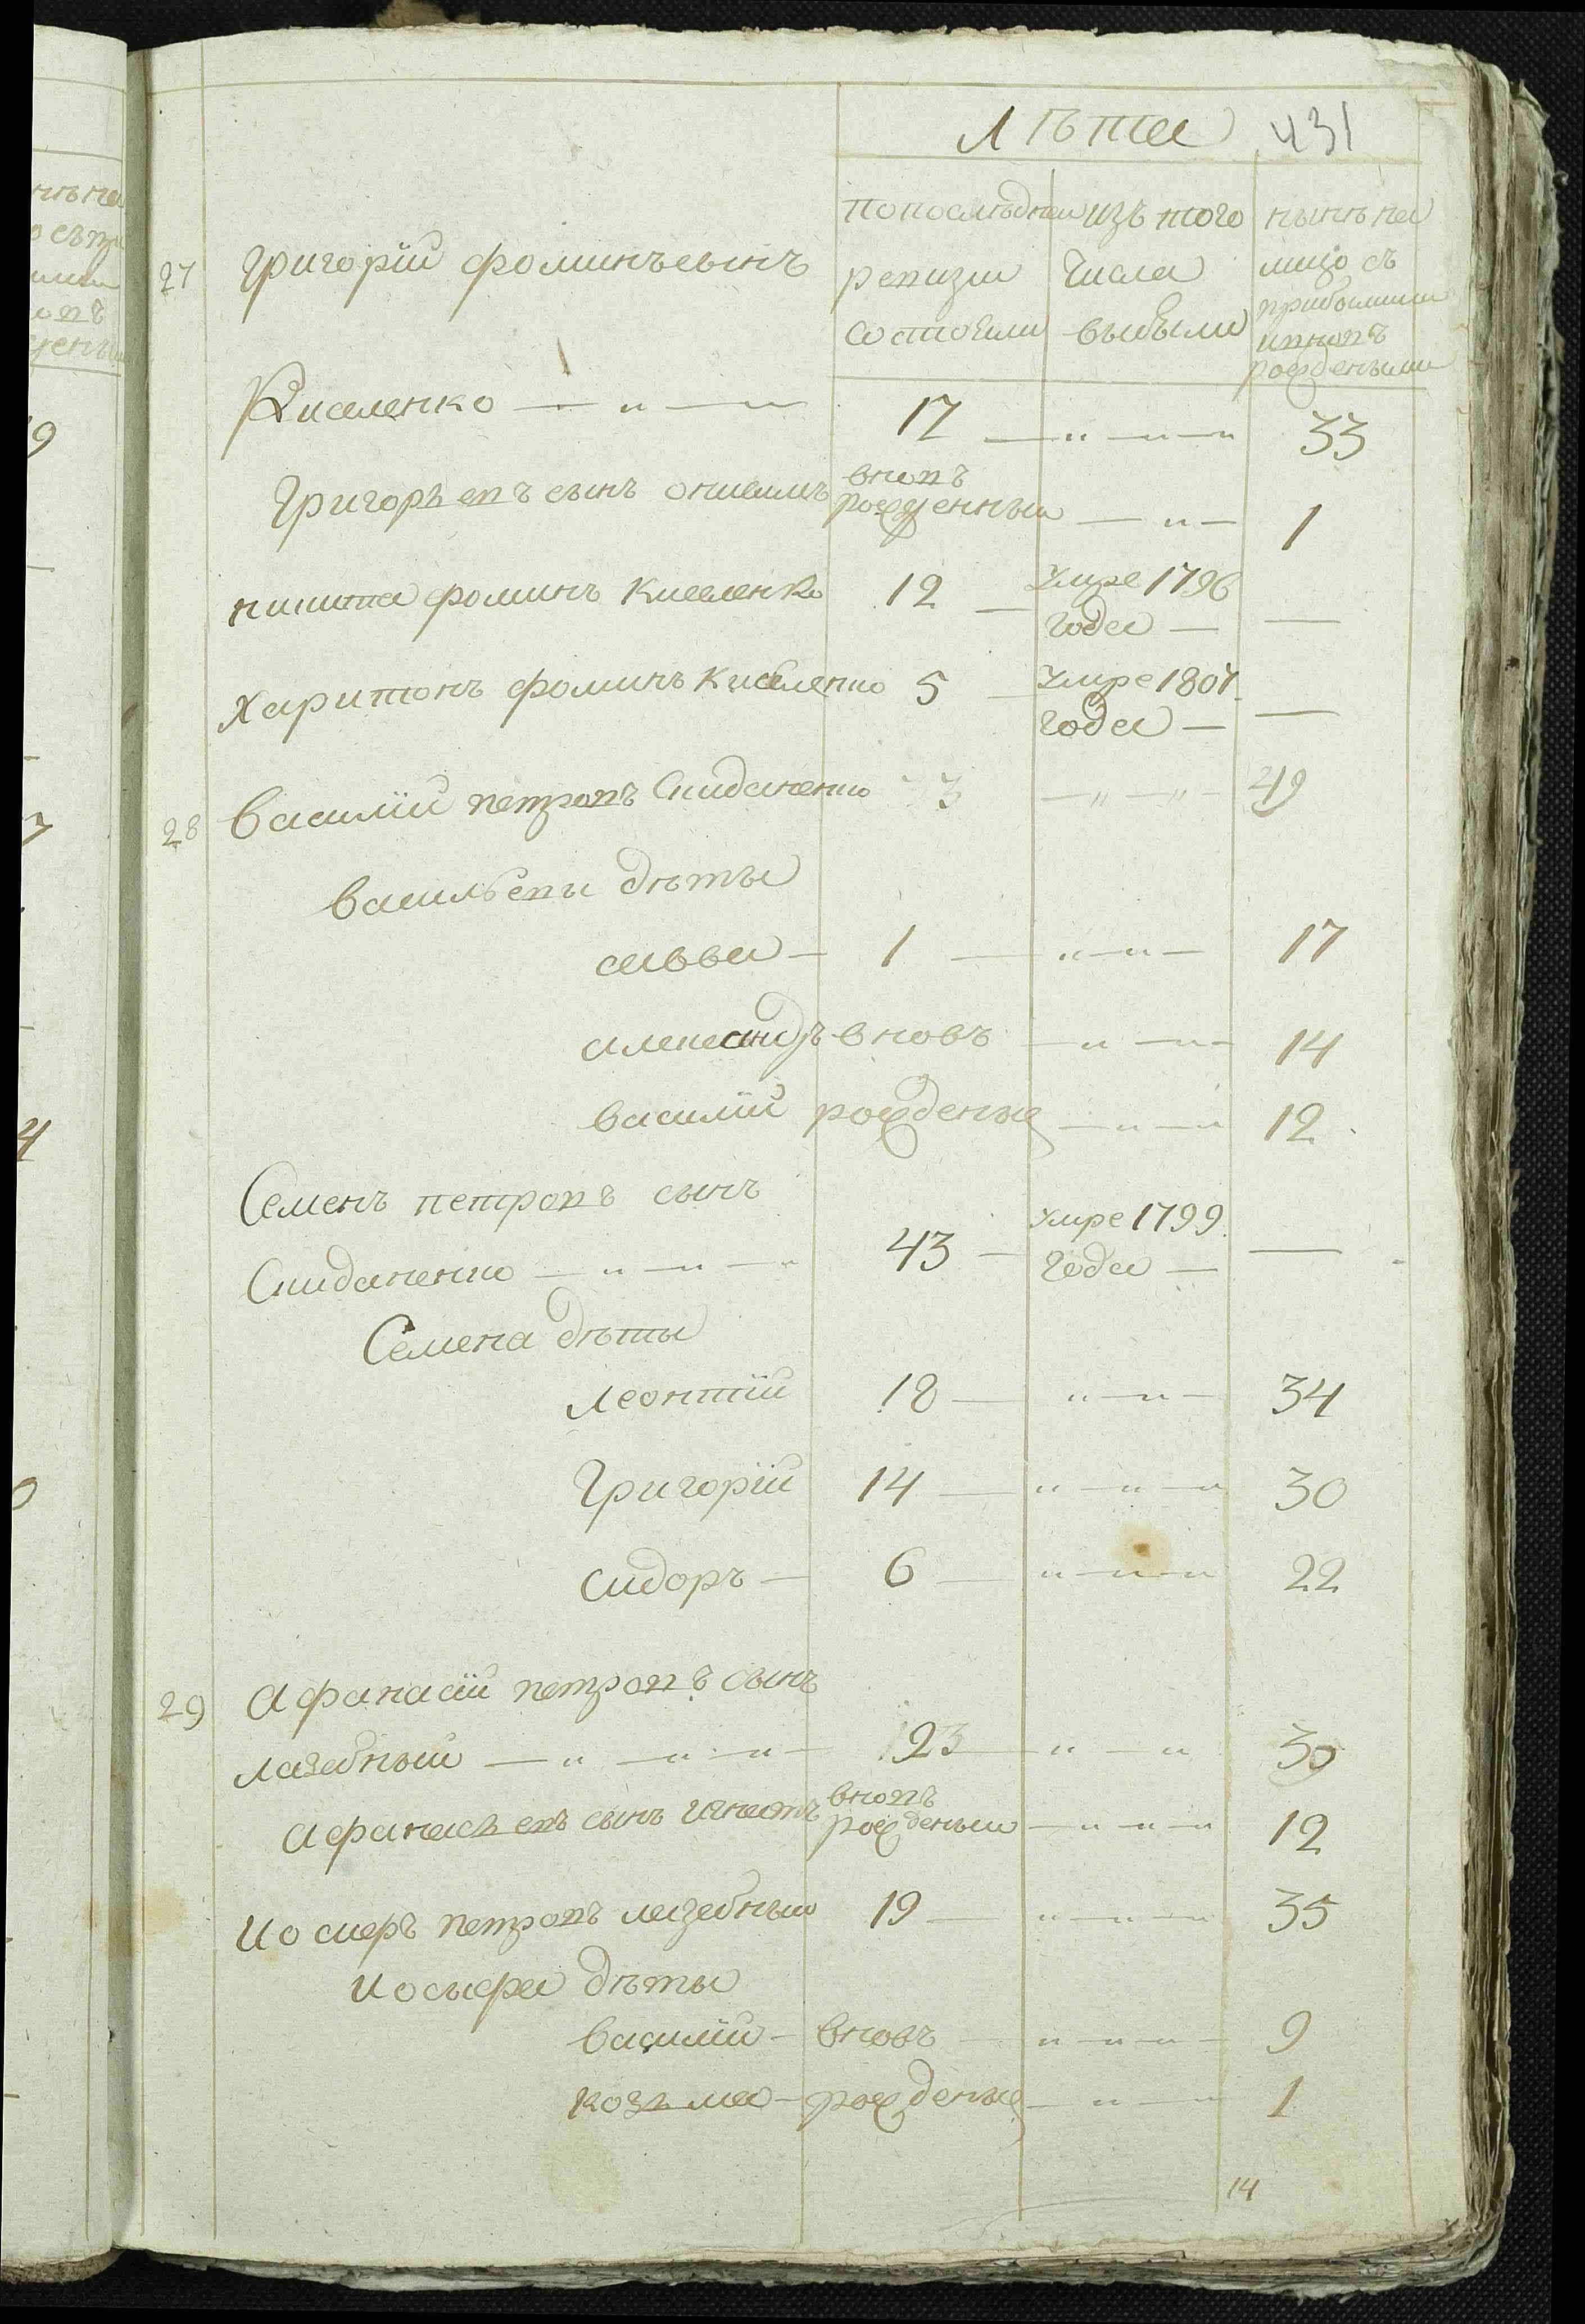 Лѣта 431
по последней изъ того нынѣ на
ревизіи числа лицо съ
состояли выбыли прибылими
и вновъ
рождеными
27 Григорій Фоминъ сынъ
Киселенко — " — 17 — " — " — " 33
Григорьевъ сынъ вновъ
рожденный — " — 1
Никита Фоминъ Киселенко 12 — Умре 1796
года — —
Харитонъ Фоминъ Киселенко 5 — Умре 1801
года — —
28 Василій Петровъ 33 — " — " — 49
Васильевы дѣты
Савва — 1 — " — " — 17
Александръ вновъ — " — " — 14
Василій рожденые — " — " 12
Семенъ Петровъ сынъ
— " — " — " 43 — Умре 1799
года — —
Семена дѣты
Леонтій 18 — " — " — 34
Григорій 14 — " — " — " 30
Сидоръ — 6 — " — " — " 22
29 Афанасій Петровъ сынъ
Лазебный — " — " — " — 23 — " — " 39
Афанасьевъ сынъ Игнатъ вновъ
рожденый — " — " — " 12
Иосифъ Петровъ Лазебный 19 — " — " — " 35
Иосифа дѣты
Василій — вновъ — " — " — " — 9
Козьма — рожденые — " — " 1
14